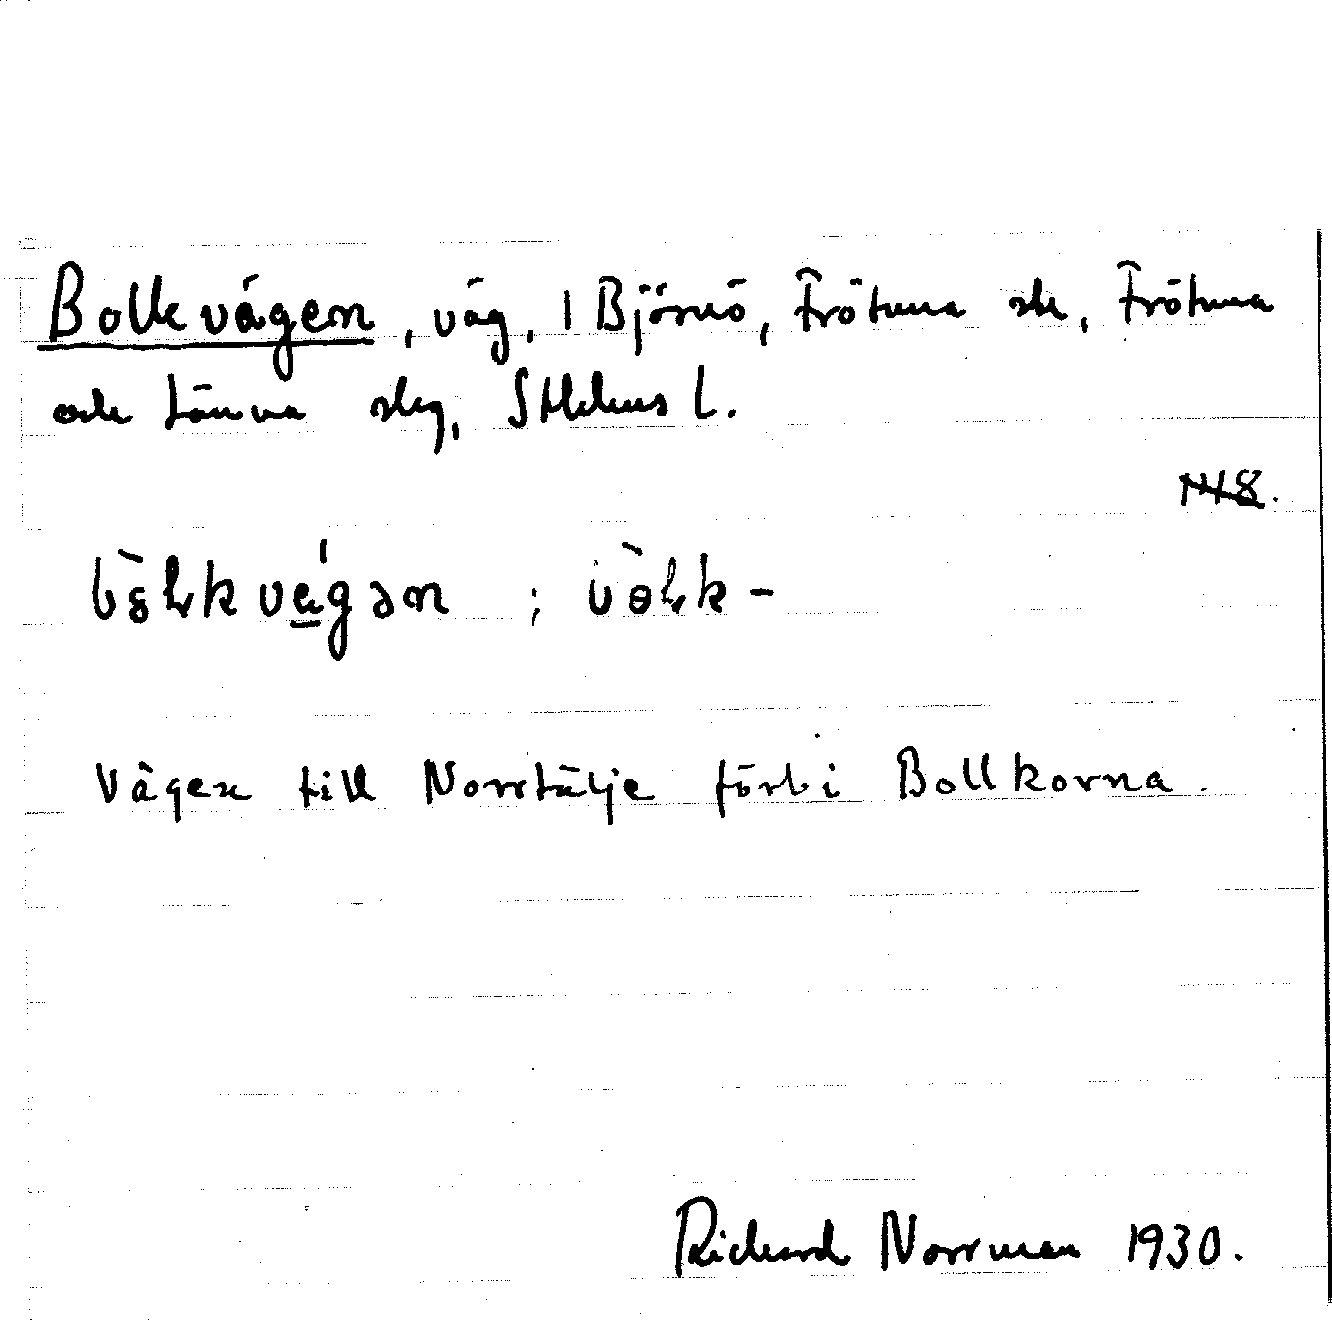 Bolkvägen, väg, i Björnö, Frötuna sk, Frötuna
och Länna skg, Sthlms L.
Vägen till Norrtälje förbi Bollkorna.
Richard Norrman 1930.